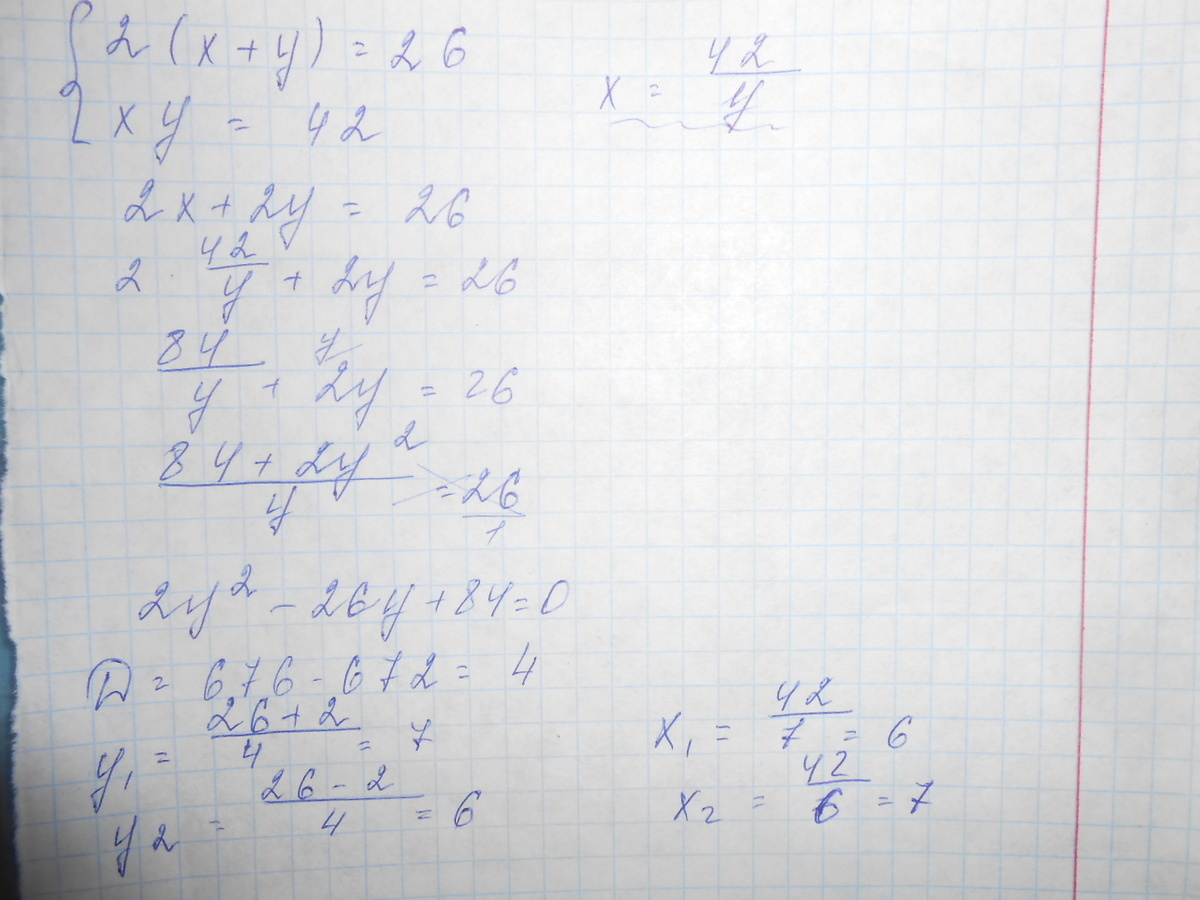 2(x+y)=26
xy=42
x=42/y
2x+2y=26
2·42/y+2y=26
84/y+2y=26
(84+2y²)/y=26/1
2y²-26y+84=0
D=676-672=4
y₁=(26+2)/4=7
y2=(26-2)/4=6
x₁=42/7=6
x₂=42/6=7